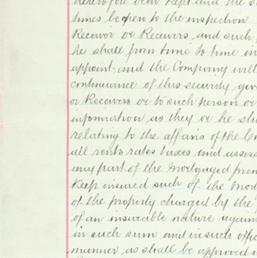 therefor duly kept and the s
times be open to the inspection
Receiver or Receivers, and such p
he shall from time to time in
appoint and the Company will
continuance of this security, giv
or Receivers or to such person or
information as they or he sha
relating to the affairs of the C
all rents rates taxes and assess
any part of the Mortgaged prem
Keep insured such of the Mort
of the property charged by the
of an insurable nature again
in such sum and in such offic
manner as shall be approved